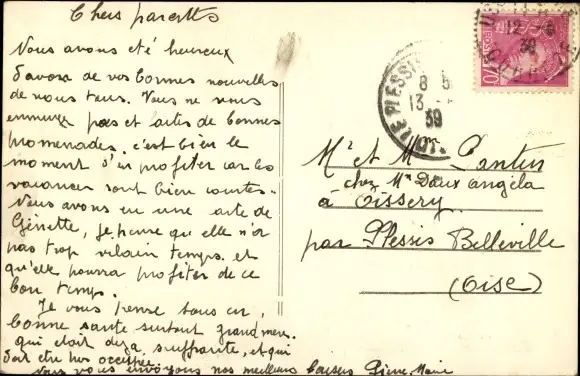 Chers parents
Nous avons été heureux
d'avoir de vos bonnes nouvelles
de nous tous. Vous ne vous
ennuyez pas et faites de bonnes
promenades. c'est bien le
moment d'en profiter car les
vacances sont bien courtes.
Nous avons eu une carte de
Ginette, je pense qu'elle n'a
pas trop vilain temps. et
qu'elle pourra profiter de ce
bon temps.
Je vous pense tous en
bonne santé surtout grand mère.
qui était déjà souffrante, et qui
doit être très occupée.
Nous vous envoyons nos meilleurs baisers Pierre, Marie
12
39
LE PLESSIS
13
39
70
Mr et Mme Cantin
chez Mr Daux Angéla
à Oissery
par Plessis Belleville
(Oise)